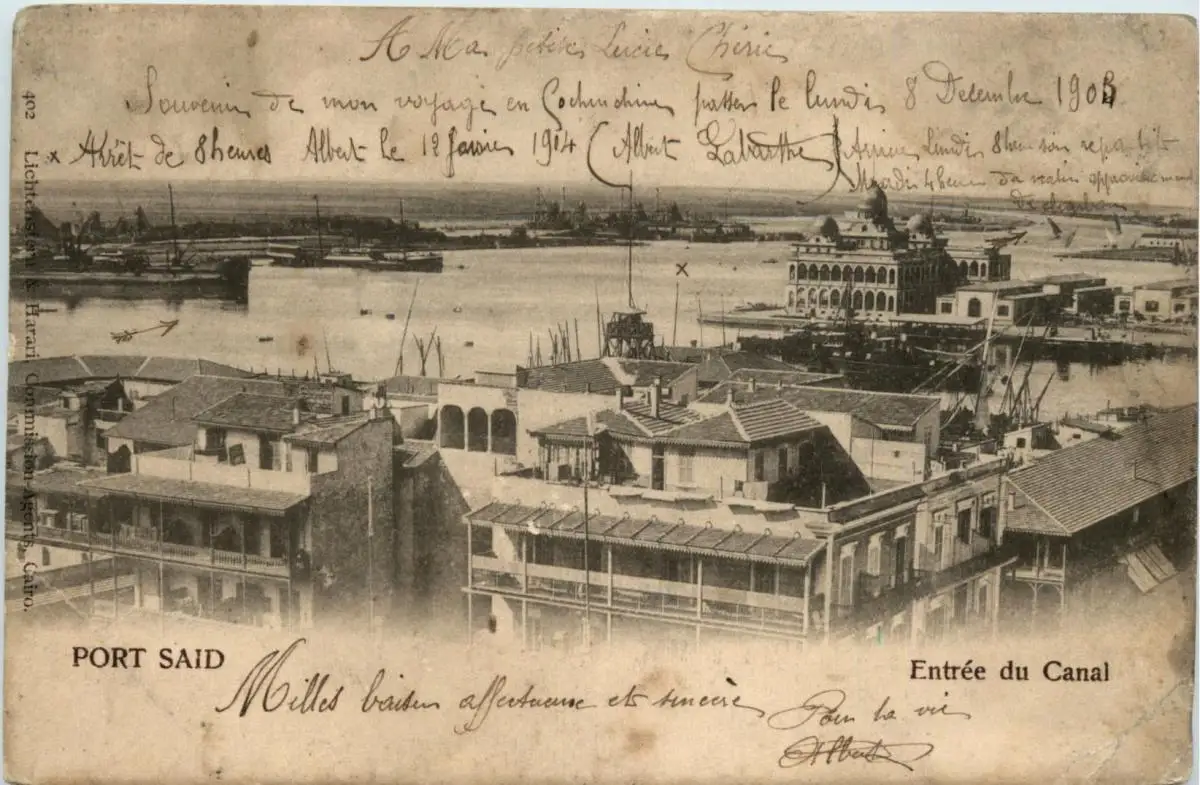 A Ma petite Lucie Chérie
Souvenir de mon voyage en Cochinchine passer le lundi 8 Decembre 1903
x Arrêt de 8 heures Albert le 12 Janvier 1904 (Albert Labarthe) Arrivée Lundi 8 heu soir
Mardi 4 heures du matin
x
402 Lichtenstern & Harari, Commission Agents, Cairo.
PORT SAID
Entrée du Canal
Milles baisers affectueuse et sincère
Pour la vie
Albert